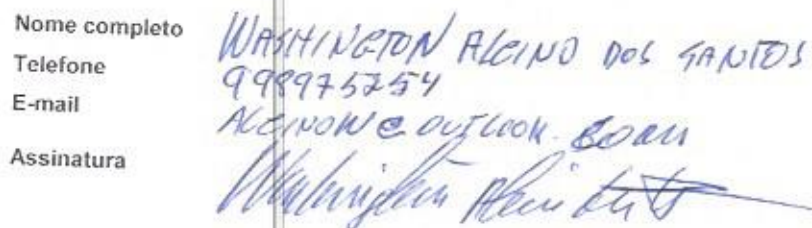 Nome completo WASHINGTON ALCINO DOS SANTOS
Telefone 998975254
E-mail ALCINOW@OUTLOOK.COM
Assinatura Washington Alcino